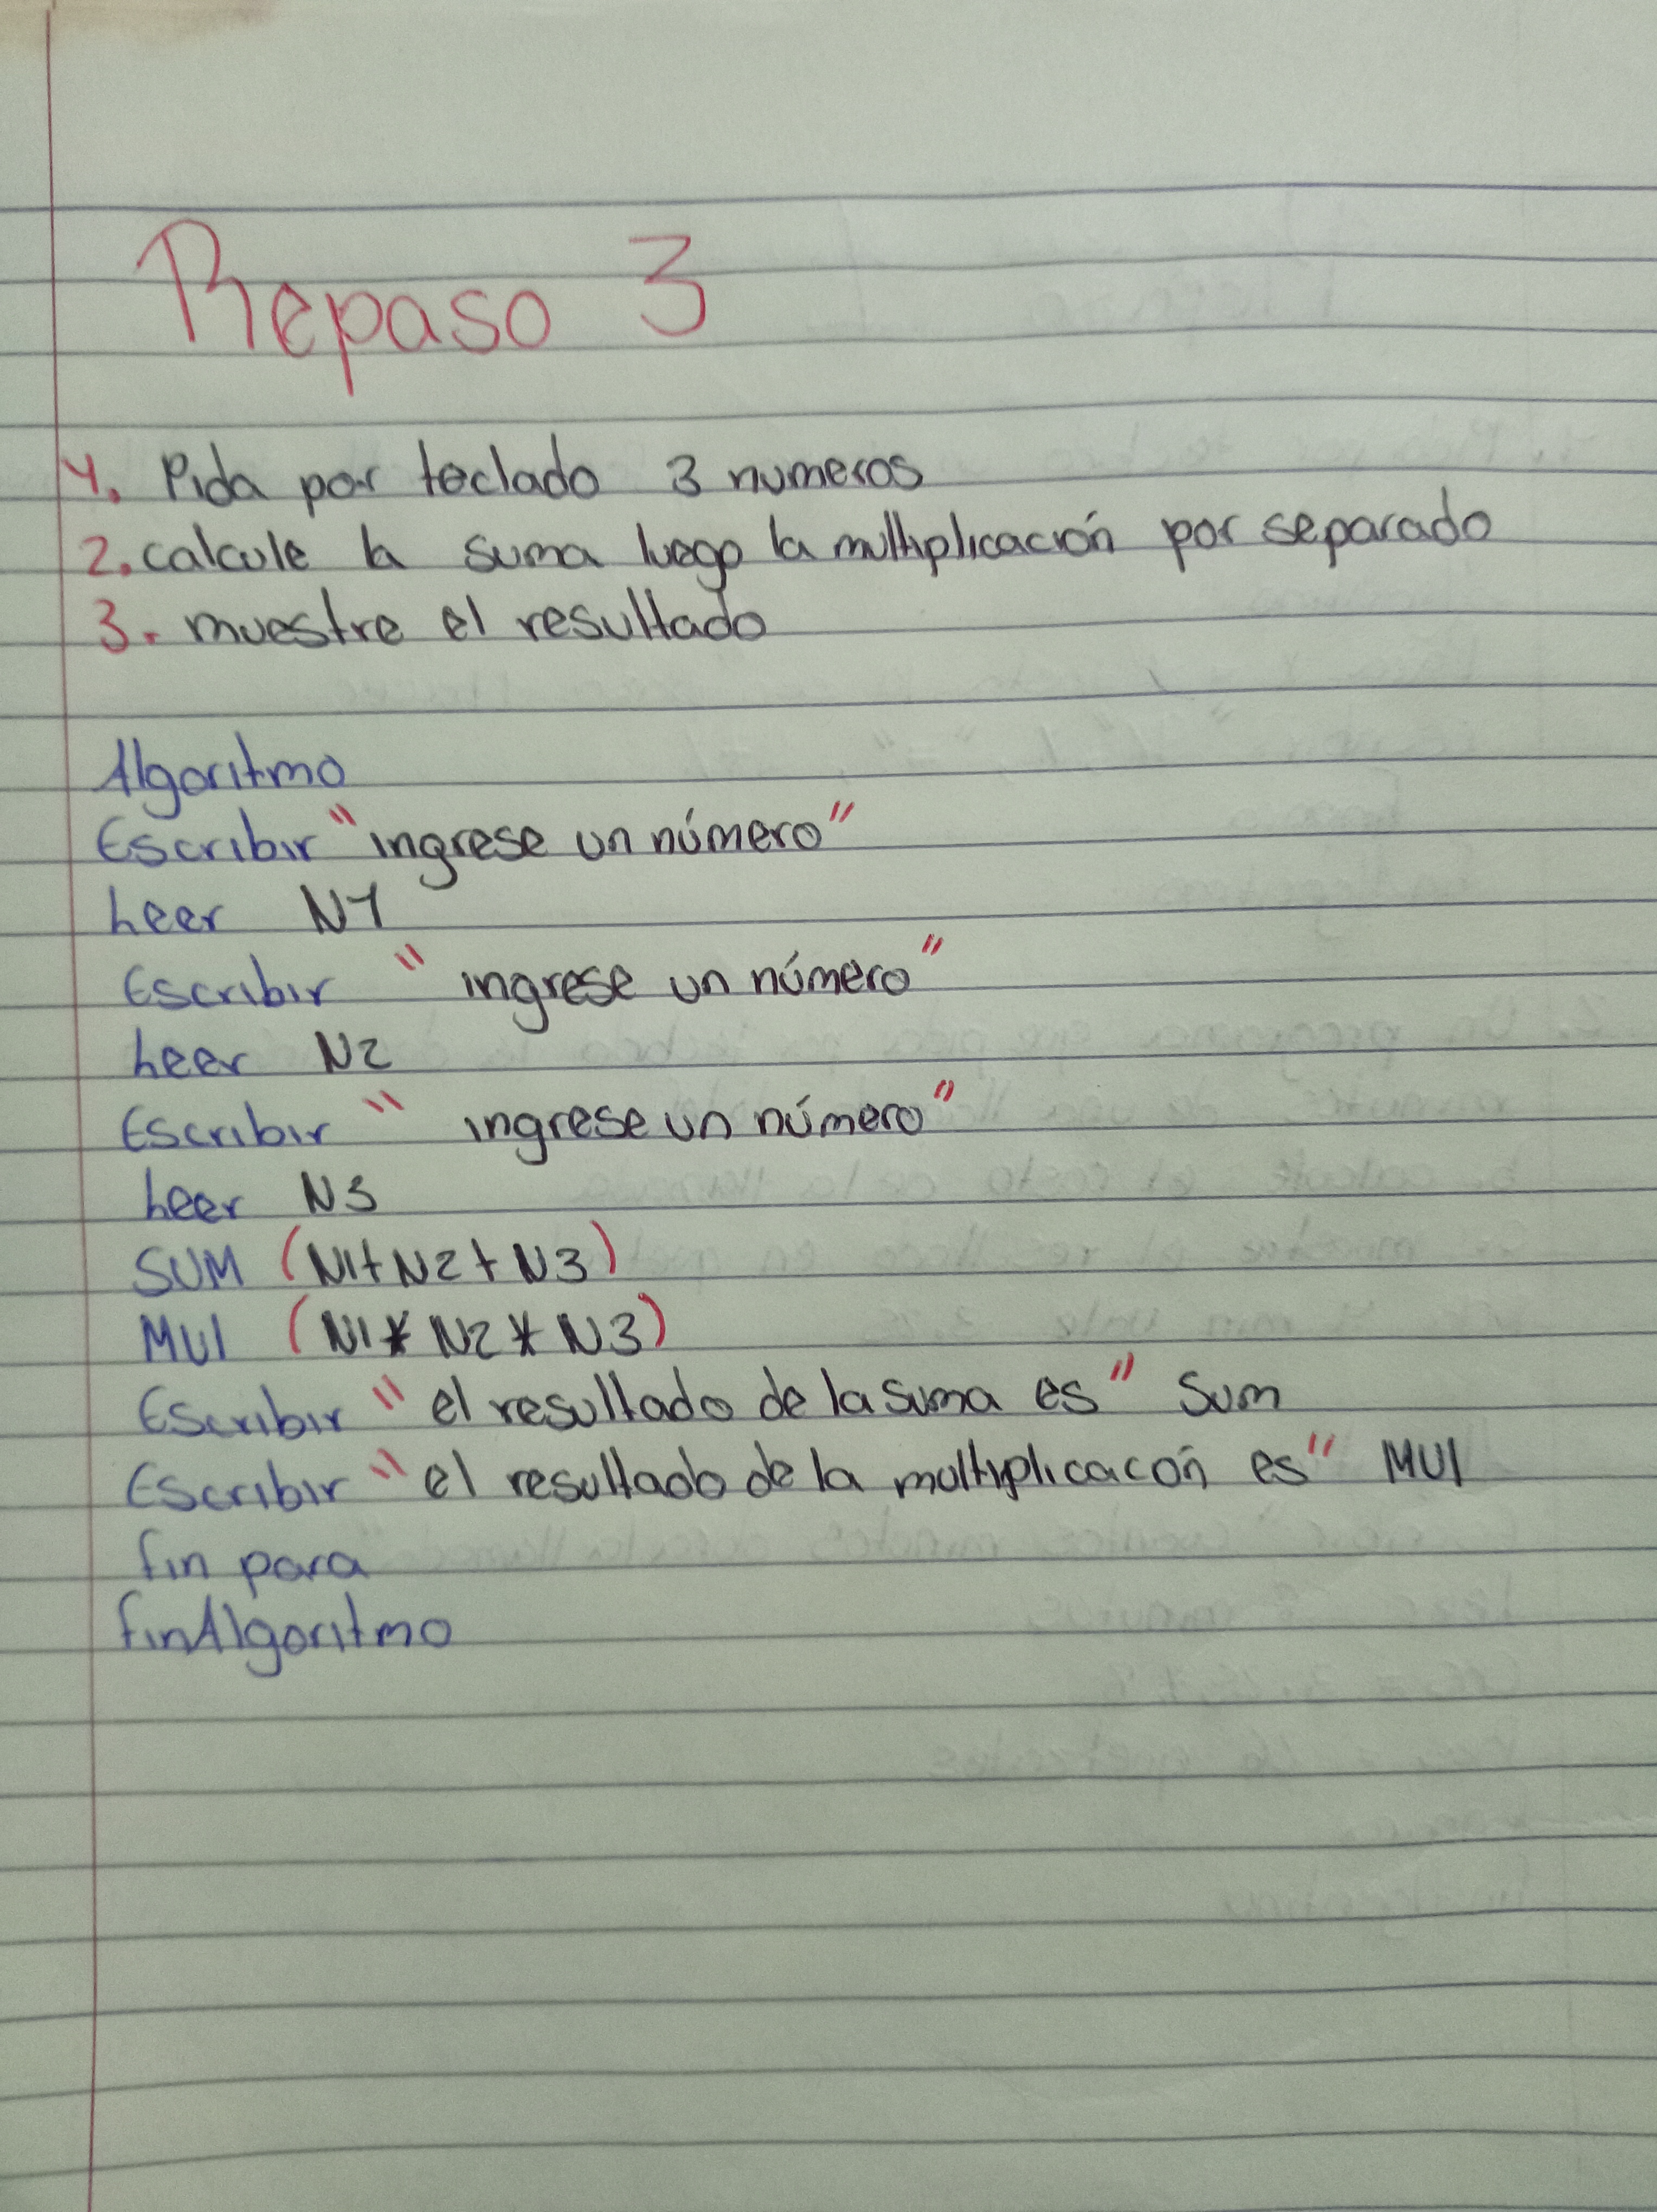 Repaso 3
1. Pida por teclado 3 numeros
2. calcule la suma luego la multiplicación por separado
3. muestre el resultado
Algoritmo
Escribir "ingrese un número"
Leer N1
Escribir "ingrese un número"
Leer N2
Escribir "ingrese un número"
Leer N3
SUM (N1+N2+N3)
MUl (N1*N2*N3)
Escribir "el resultado de la suma es" Sum
Escribir "el resultado de la multiplicacón es" MUl
fin para
finAlgoritmo